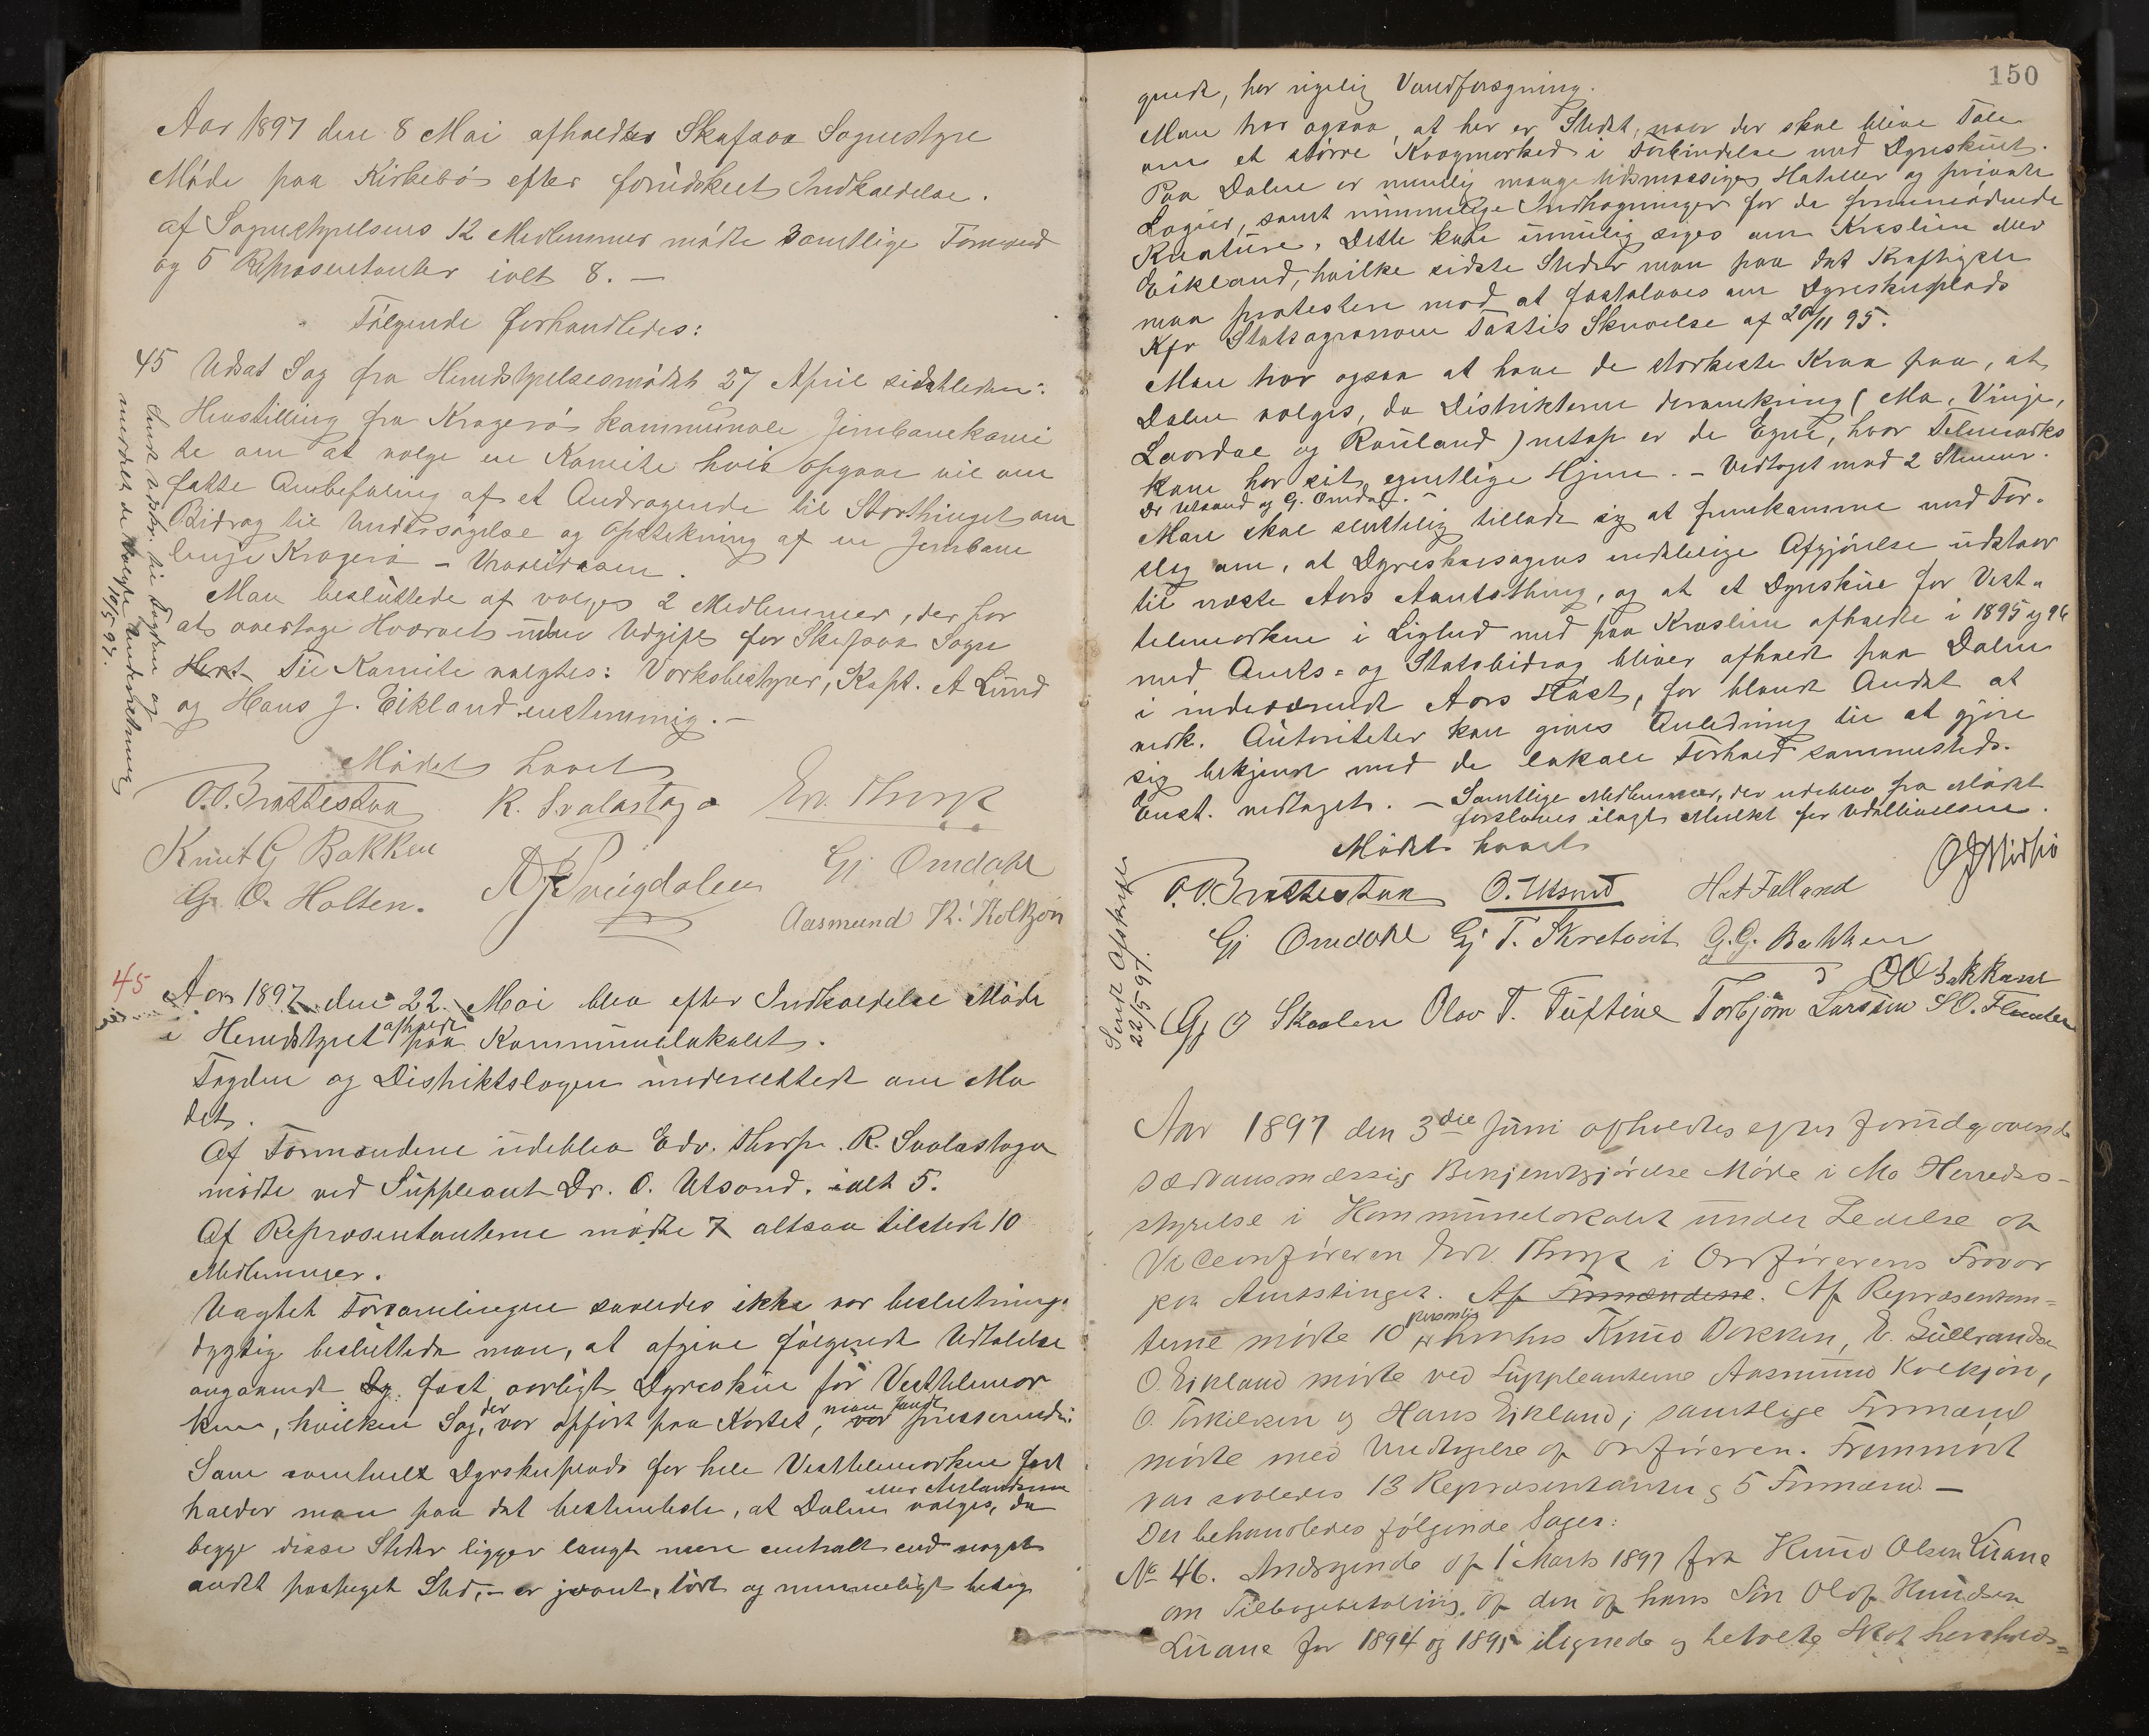 Aar 1897 den 8 Mai afholdtes Skafsaa Sognestyre
Møde paa Kirkebø efter forudskeet Indkaldelse.
af Sognestyrelsens 12 Medlemmer mødte samtlige Formænd
og 5 Repræsentanter ialt 8. —
Følgende forhandledes:
45 Udsat Sag fra Herredstyrelsesmødet 27 April sidstleden:
Henstilling fra Kragerø kommunale Jernbanekomi
te om at vælge en Komite hvis Opgave vil om
fatte Anbefaling af et Andragende til Storthinget om
Bidrag til Undersøgelse og Opstikning af en Jernbane
linje Kragerø – Vraaliosen.
Man besluttede at vælges 2 Medlemmer, der har
at overtage Hvervet uden Udgift for Skafsaa Sogn
Hert. Til Komite valgtes: Værksbestyrer, Kapt. A Lund
og Hans J. Eikland enstemmig. —
Sendt Udskr. til Fogden og
meddelt de Valgte Underretning
10/5 97.
Mødet hævet
O.O. Brattestaa R. Svalastoga Edv. Thorp
Knut G Bakken
G. O. Holten. Gj Omdahl
Aasmund K. Kolkjøn
45
Aar 1897 den 22. Mai blev efter Indkaldelse Møde
i Herredstyret afholdt paa Kommunelokalet.
Fogden og Distriktslægen underrettede om Mø
det.
Af Formændene udeblev Edv. Thorp. R. Svalastoga
mødte ved Suppleant Dr. O. Utsond. ialt 5.
Af Repræsentanterne mødte 7 altsaa tilstede 10
Medlemmer.
Uagtet Forsamlingen saaledes ikke var beslutnings
dygtig besluttede man, at afgive følgende Udtalelse
angaaende Dy. fast aarligt Dyreskue for Vesttelemar
ken, hvilken Sag, der var opført paa Kartet, man fandt presserende:
Som samlende Dyrskueplads for hele Vesttelemarken fast
holder man paa det bestemteste, at Dalen eller Aslandsmo vælges, da
begge disse Steder ligger langt mere centralt end noget
andet paapeget Sted, – er jevnt, tørt og rummeligt belig
150
gende, har rigelig Vandforsyning.
Man tror ogsaa, at her er Stedet, naar der skal blive Tale
om et større Kvægmarked i Forbindelse med Dyrskuet.
Paa Dalen er nemlig mange tidsmæssige Hoteller og private
Logier, samt rummelige Indhegninger for de fremmødende
Kreature. Dette kan umulig siges om Kraslien eller
Eikland, hvilke sidste Steder man paa det Kraftigste
maa protestere mod at fastslaaes om Dyrskueplads
Kfr Statsagronom Tastis Skrivelse af 20/11 95.
Man tror ogsaa at have de stærkeste Krav paa, at
Dalen vælges, da Distrikterne deromkring (Mo, Vinje,
Laardal og Rauland) netop er de Egne, hvor Telemarks
kven har sit egentlige Hjem. – Vedtaget mod 2 Stemmer.
Dr Utsond og G. Omdal. –
Man skal slutteligt tillade sig at fremkomme med For-
slag om, at Dyreskuesagens endelige Afgjørelse udstaar
til næste Aars Amtsthing, og at et Dyrskue for Vest-
telemarken i Lighed med paa Kraslien afholdte i 1895 og 96
med Amts- og Statsbidrag bliver afholdt paa Dalen
i indeværende Aars Høst, for blandt Andet at
vedk. Autoriteter kan gives Anledning til at gjøre
sig bekjendt med de lokale Forhold sammesteds.
Enst. vedtaget. – Samtlige Medlemmer, der udeblev fra Mødet
foreslaaes ilagt Mulkt for Udeblivelsen.
Mødet hævet
Sendt Afskrift
22/5 97.
O.O. Brattestaa O. Utsond H A Falland
Gj Omdahl Gj T. Skretveit G. G. Bakken
Gj O Skaalen Olav T. Tuftene Torbjøn Larssen
Aar 1897 den 3die Juni afholdtes efter forudgaaende
sædvansmæssig Bekjendtgjørelse Møde i Mo Herreds-
styrelse i Kommunelokalet under Ledelse af
Viceordføreren Edv. Thorp i Ordførerens Fravær
paa Amtstinget. Af Formændene. Af Repræsentan-
terne mødte 10 personlig Knud Bakken, E. Gullvandsen
O. Eikland mødte ved Suppleanterne Aasmund Kolkjøn,
O. Torkilsen og Hans Eikland; samtlige Formænd
mødte med Undtagelse af Ordføreren. Fremmødt
var saaledes 13 Repræsentanter og 5 Formænd. —
Der behandledes følgende Sager:
No 46. Andragende af 1 Marts 1897 fra Knud Olsen Liane
om Tilbagebetaling af den af hans Søn Olaf Knudsen
Liane for 1894 og 1895 ilignede og betalte Skat henholds=